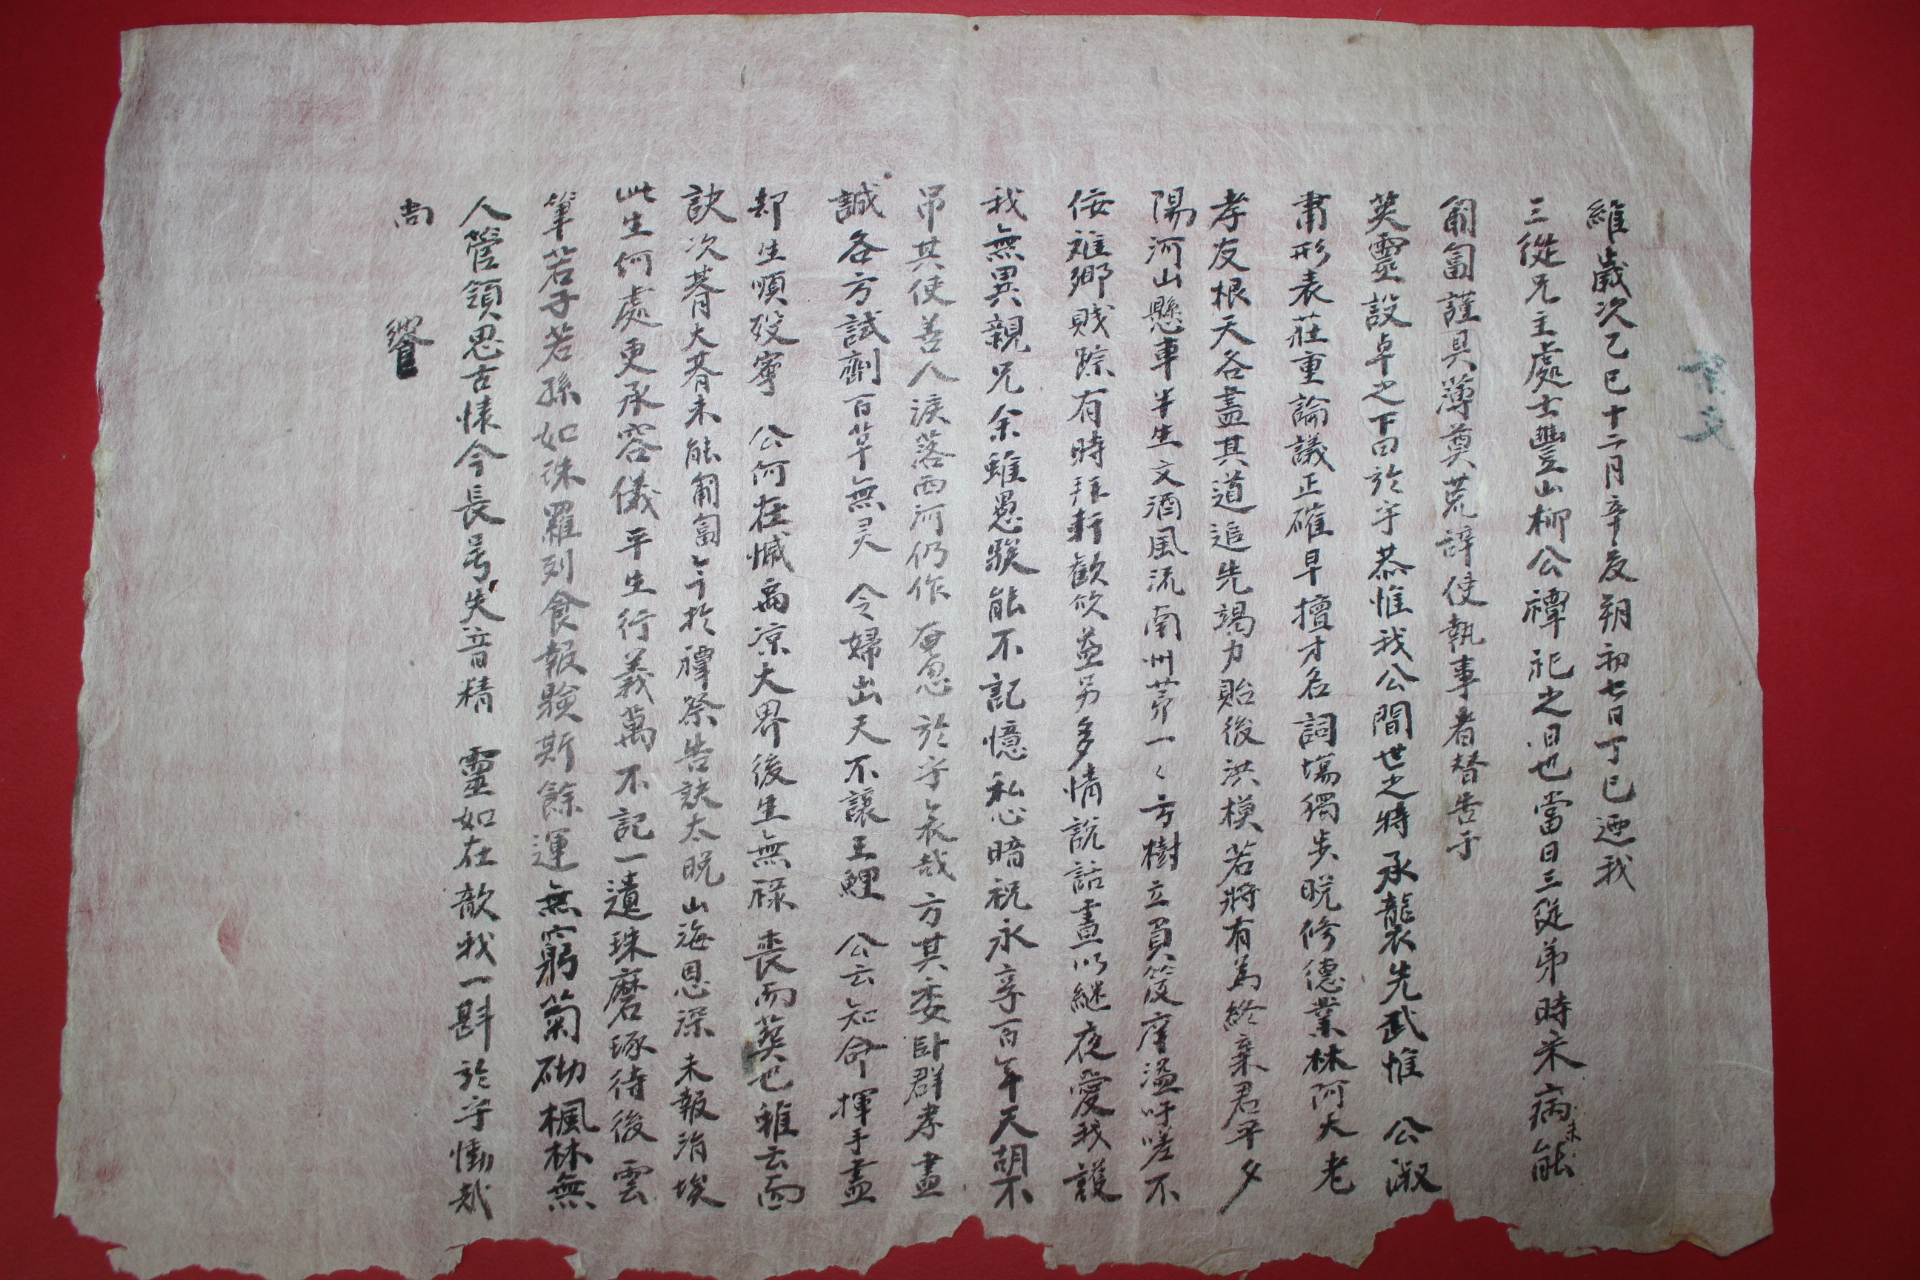 祭文
維歲次乙巳十二月辛亥朔初七日丁巳迺我
三從兄主處士豐山柳公禫祀之日也當日三從弟時采病未能
匍匐謹具薄奠荒辞使執事者替告于
英靈設卓之下曰於乎恭惟我公間世之特承襲先武惟 公淑
肅形表莊重論議正確早擅才名詞場獨步脫修德業林阿大老
孝友根天各盡其道追先竭力貽後洪模若將有為終棄君平夕
陽河山懸車半生文酒風流南州第一々方樹立負笈庠溢吁嗟不
佞雖鄉賤踪有時拜軒歡欣益另多情說話晝以継夜愛我護
我無異親兄余雖愚騃能不記憶私心暗祝永享百年天胡不
吊其使善人淚落西河仍作奄忽於乎哀哉方其委臥群孝盡
誠各方試劑百草無灵 令婦出天不讓王鯉 公云知命揮手盡
却生順歿寧 公何在憾而凉大界後生無祿喪而葬也雖云面
訣次朞大朞未能匍匐今於禫祭告訣太晚山海恩深未報涓埃
此生何處更承容儀平生行義萬不記一遺珠磨琢待後雲
筆若子若孫如珠羅列食報驗斯餘運無窮菊砌楓林無
人管領思古懷今長号失音精 靈如在歆我一斟於乎慟哉
尚 饗